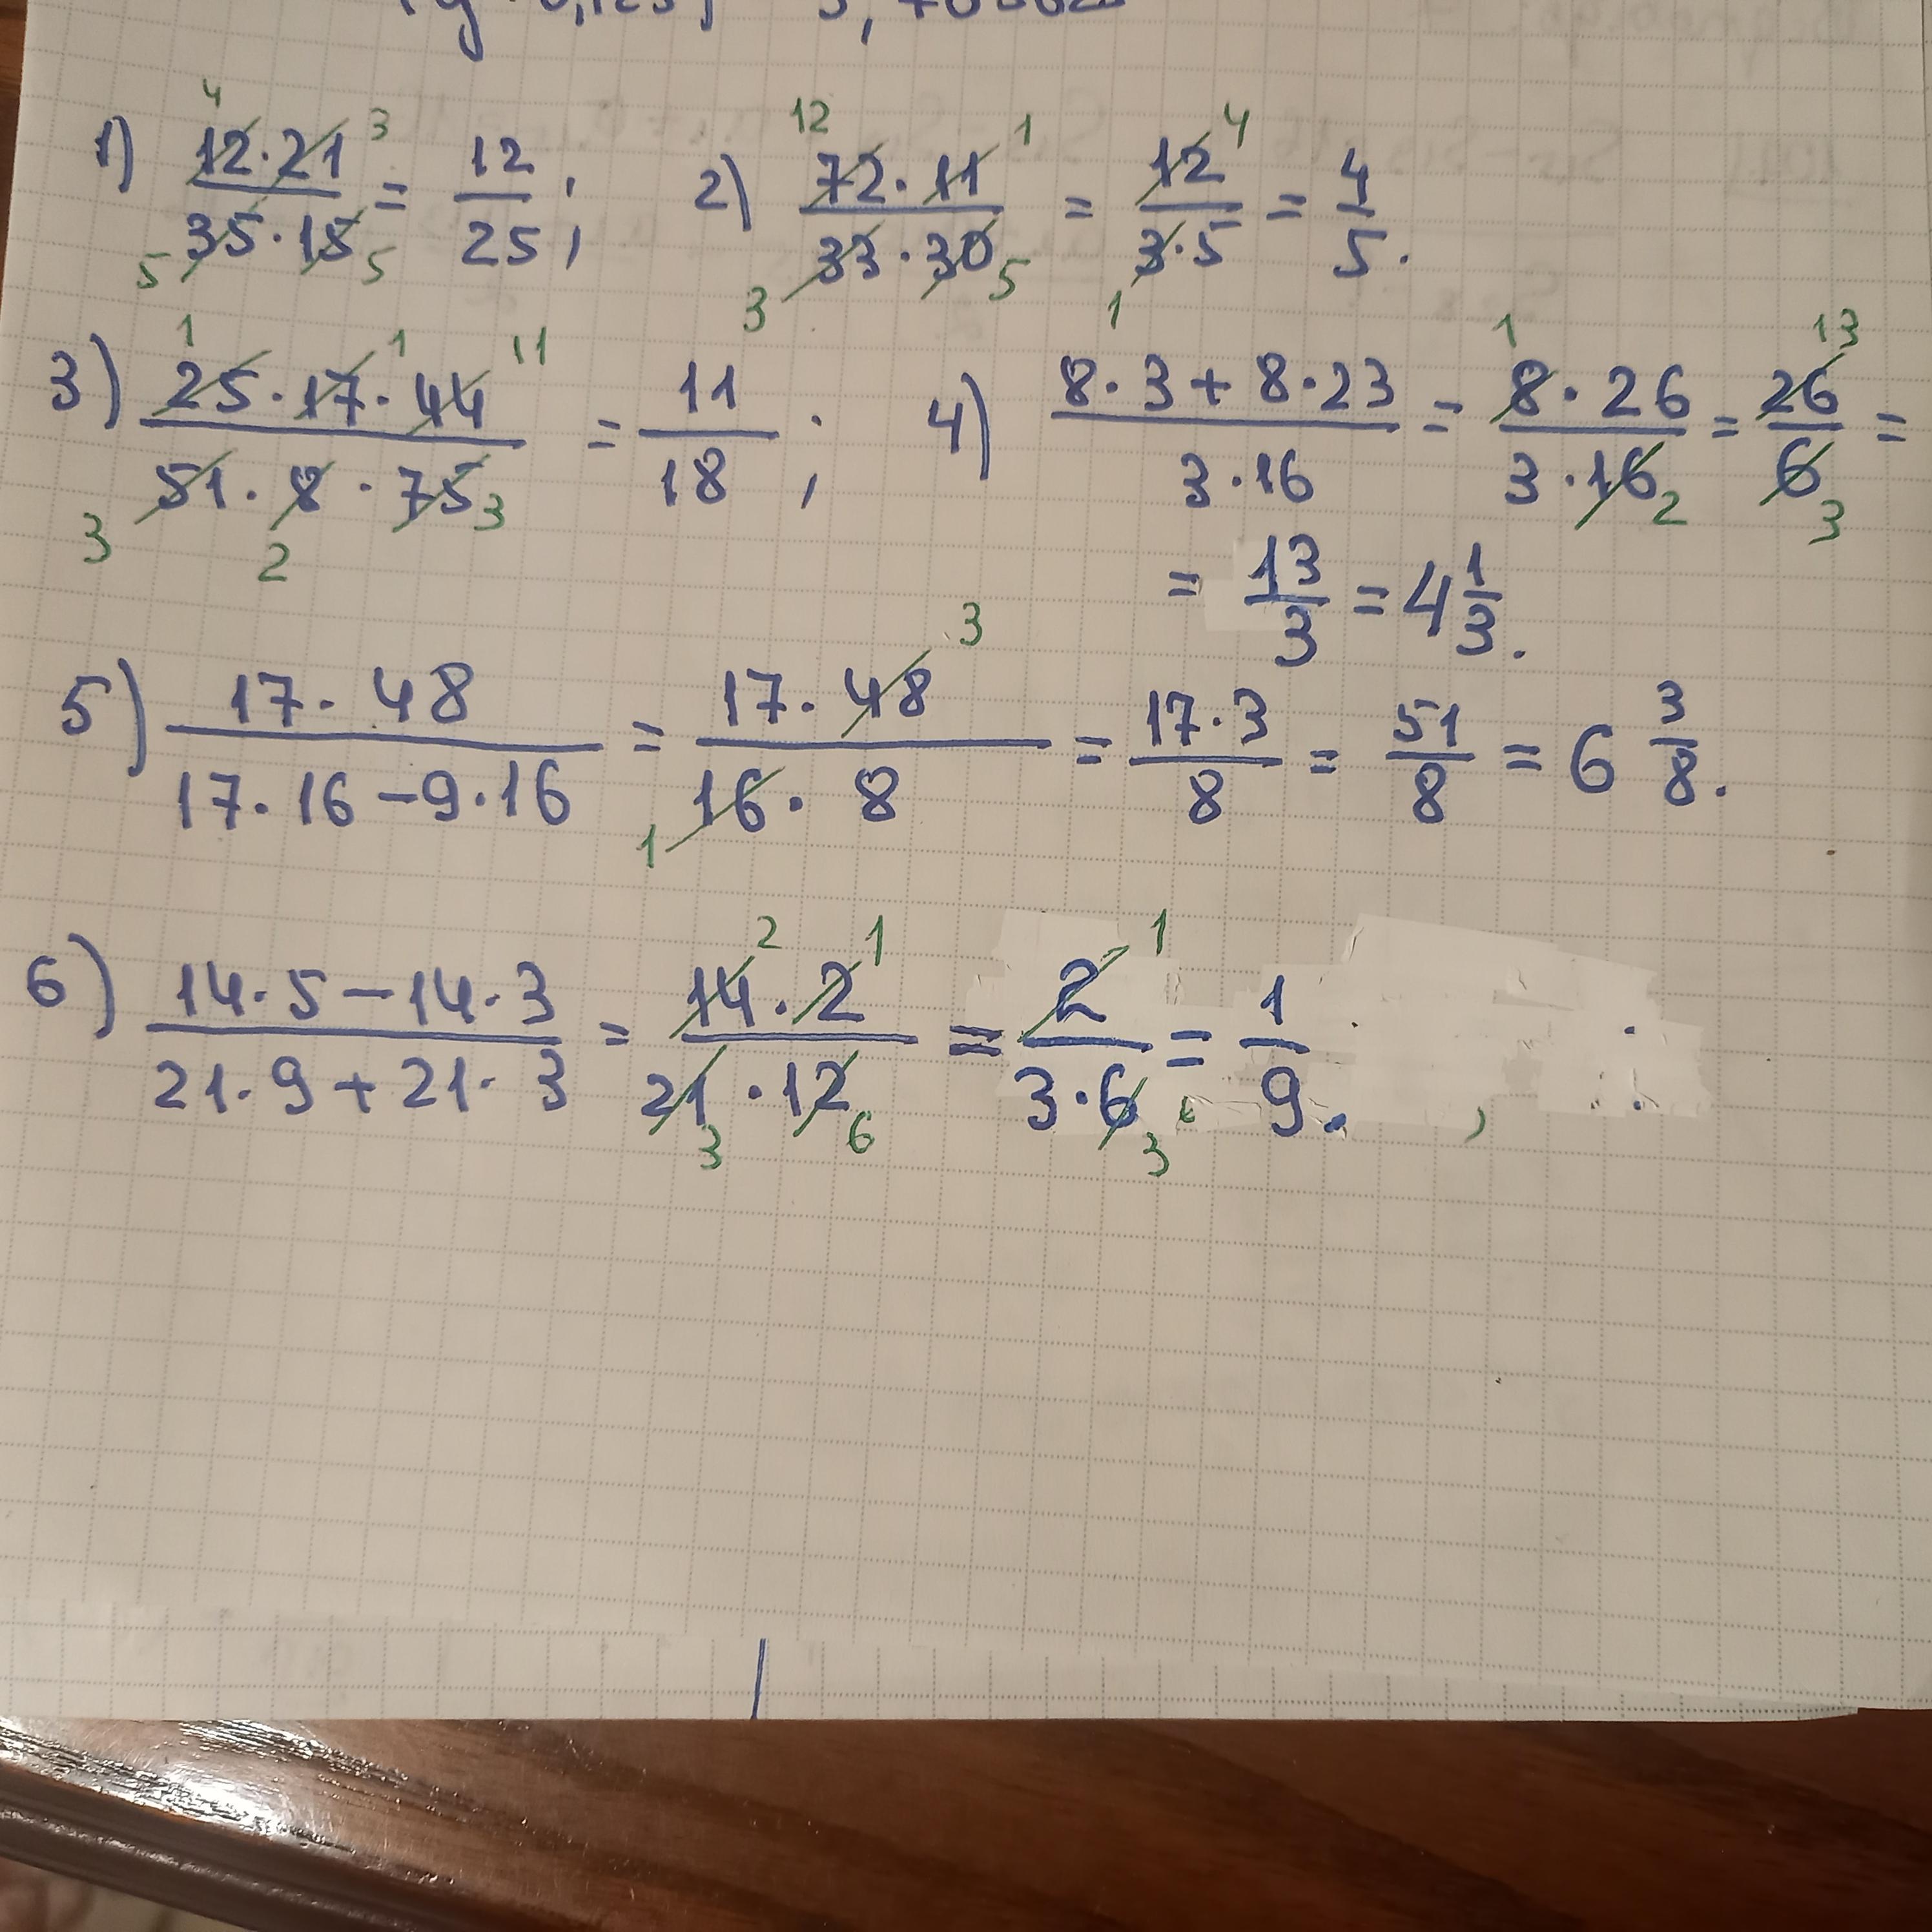 1) 12·21/35·15 = 12/25; 2) 72·11/33·30 = 12/3·5 = 4/5.
3) 25·17·44/51·8·75 = 11/18; 4) 8·3+8·23/3·16 = 8·26/3·16 = 26/6 =
= 13/3 = 4 1/3.
5) 17·48/17·16-9·16 = 17·48/16·8 = 17·3/8 = 51/8 = 6 3/8.
6) 14·5-14·3/21·9+21·3 = 14·2/21·12 = 2/3·6 = 1/9.